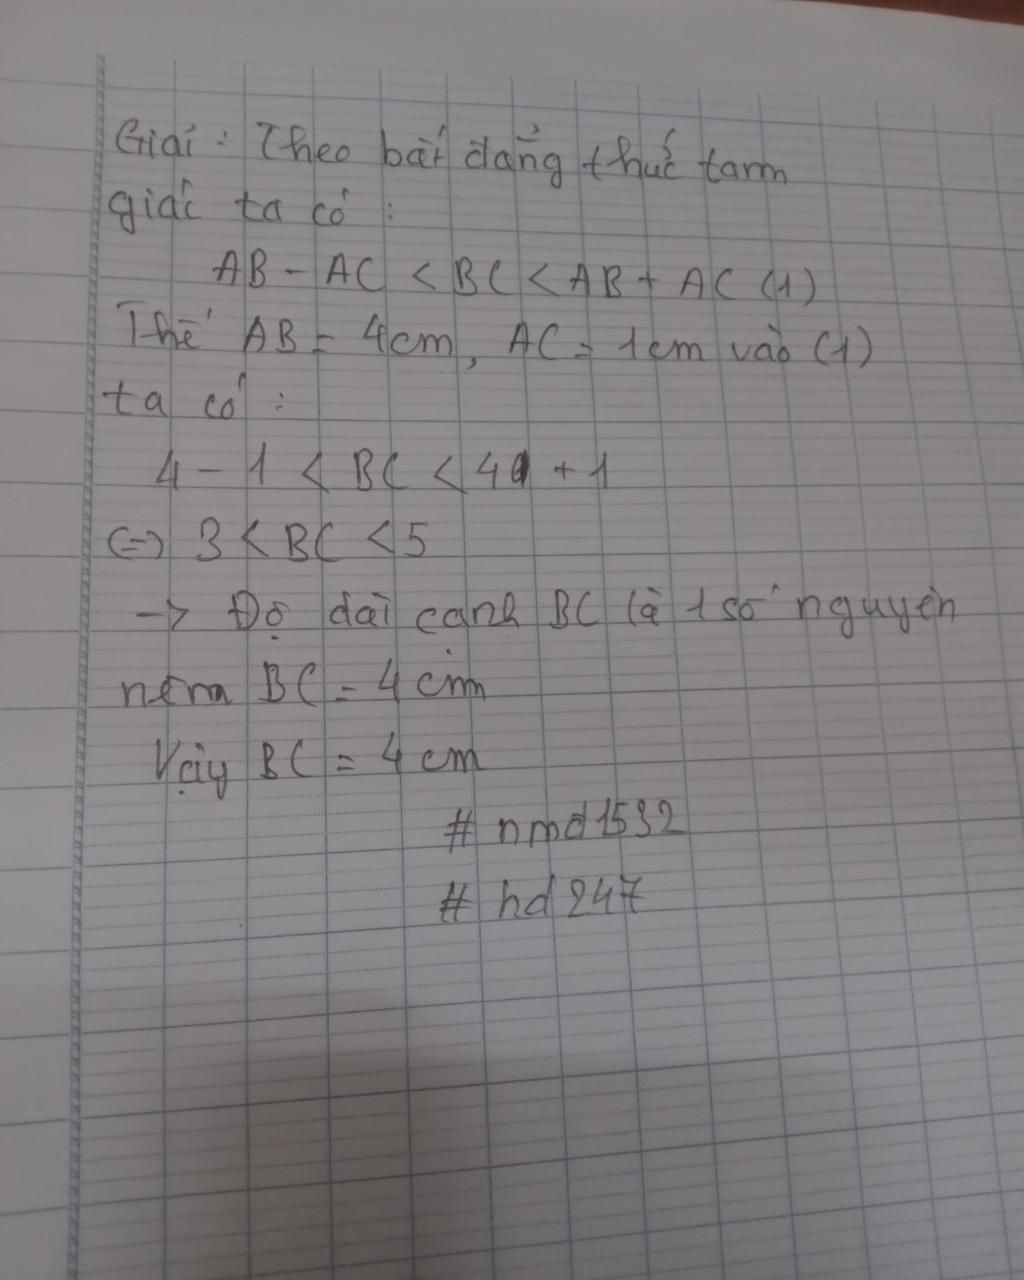 Giải : Theo bất đẳng thức tam
giác ta có :
AB - AC < BC < AB + AC (1)
Thế AB = 4cm, AC = 1cm vào (1)
ta có :
4 - 1 < BC < 4 + 1
<=> 3 < BC < 5
-> Độ dài cạnh BC là 1 số nguyên
nêm BC = 4 cm
Vậy BC = 4 cm
# nmd1532
# hd247